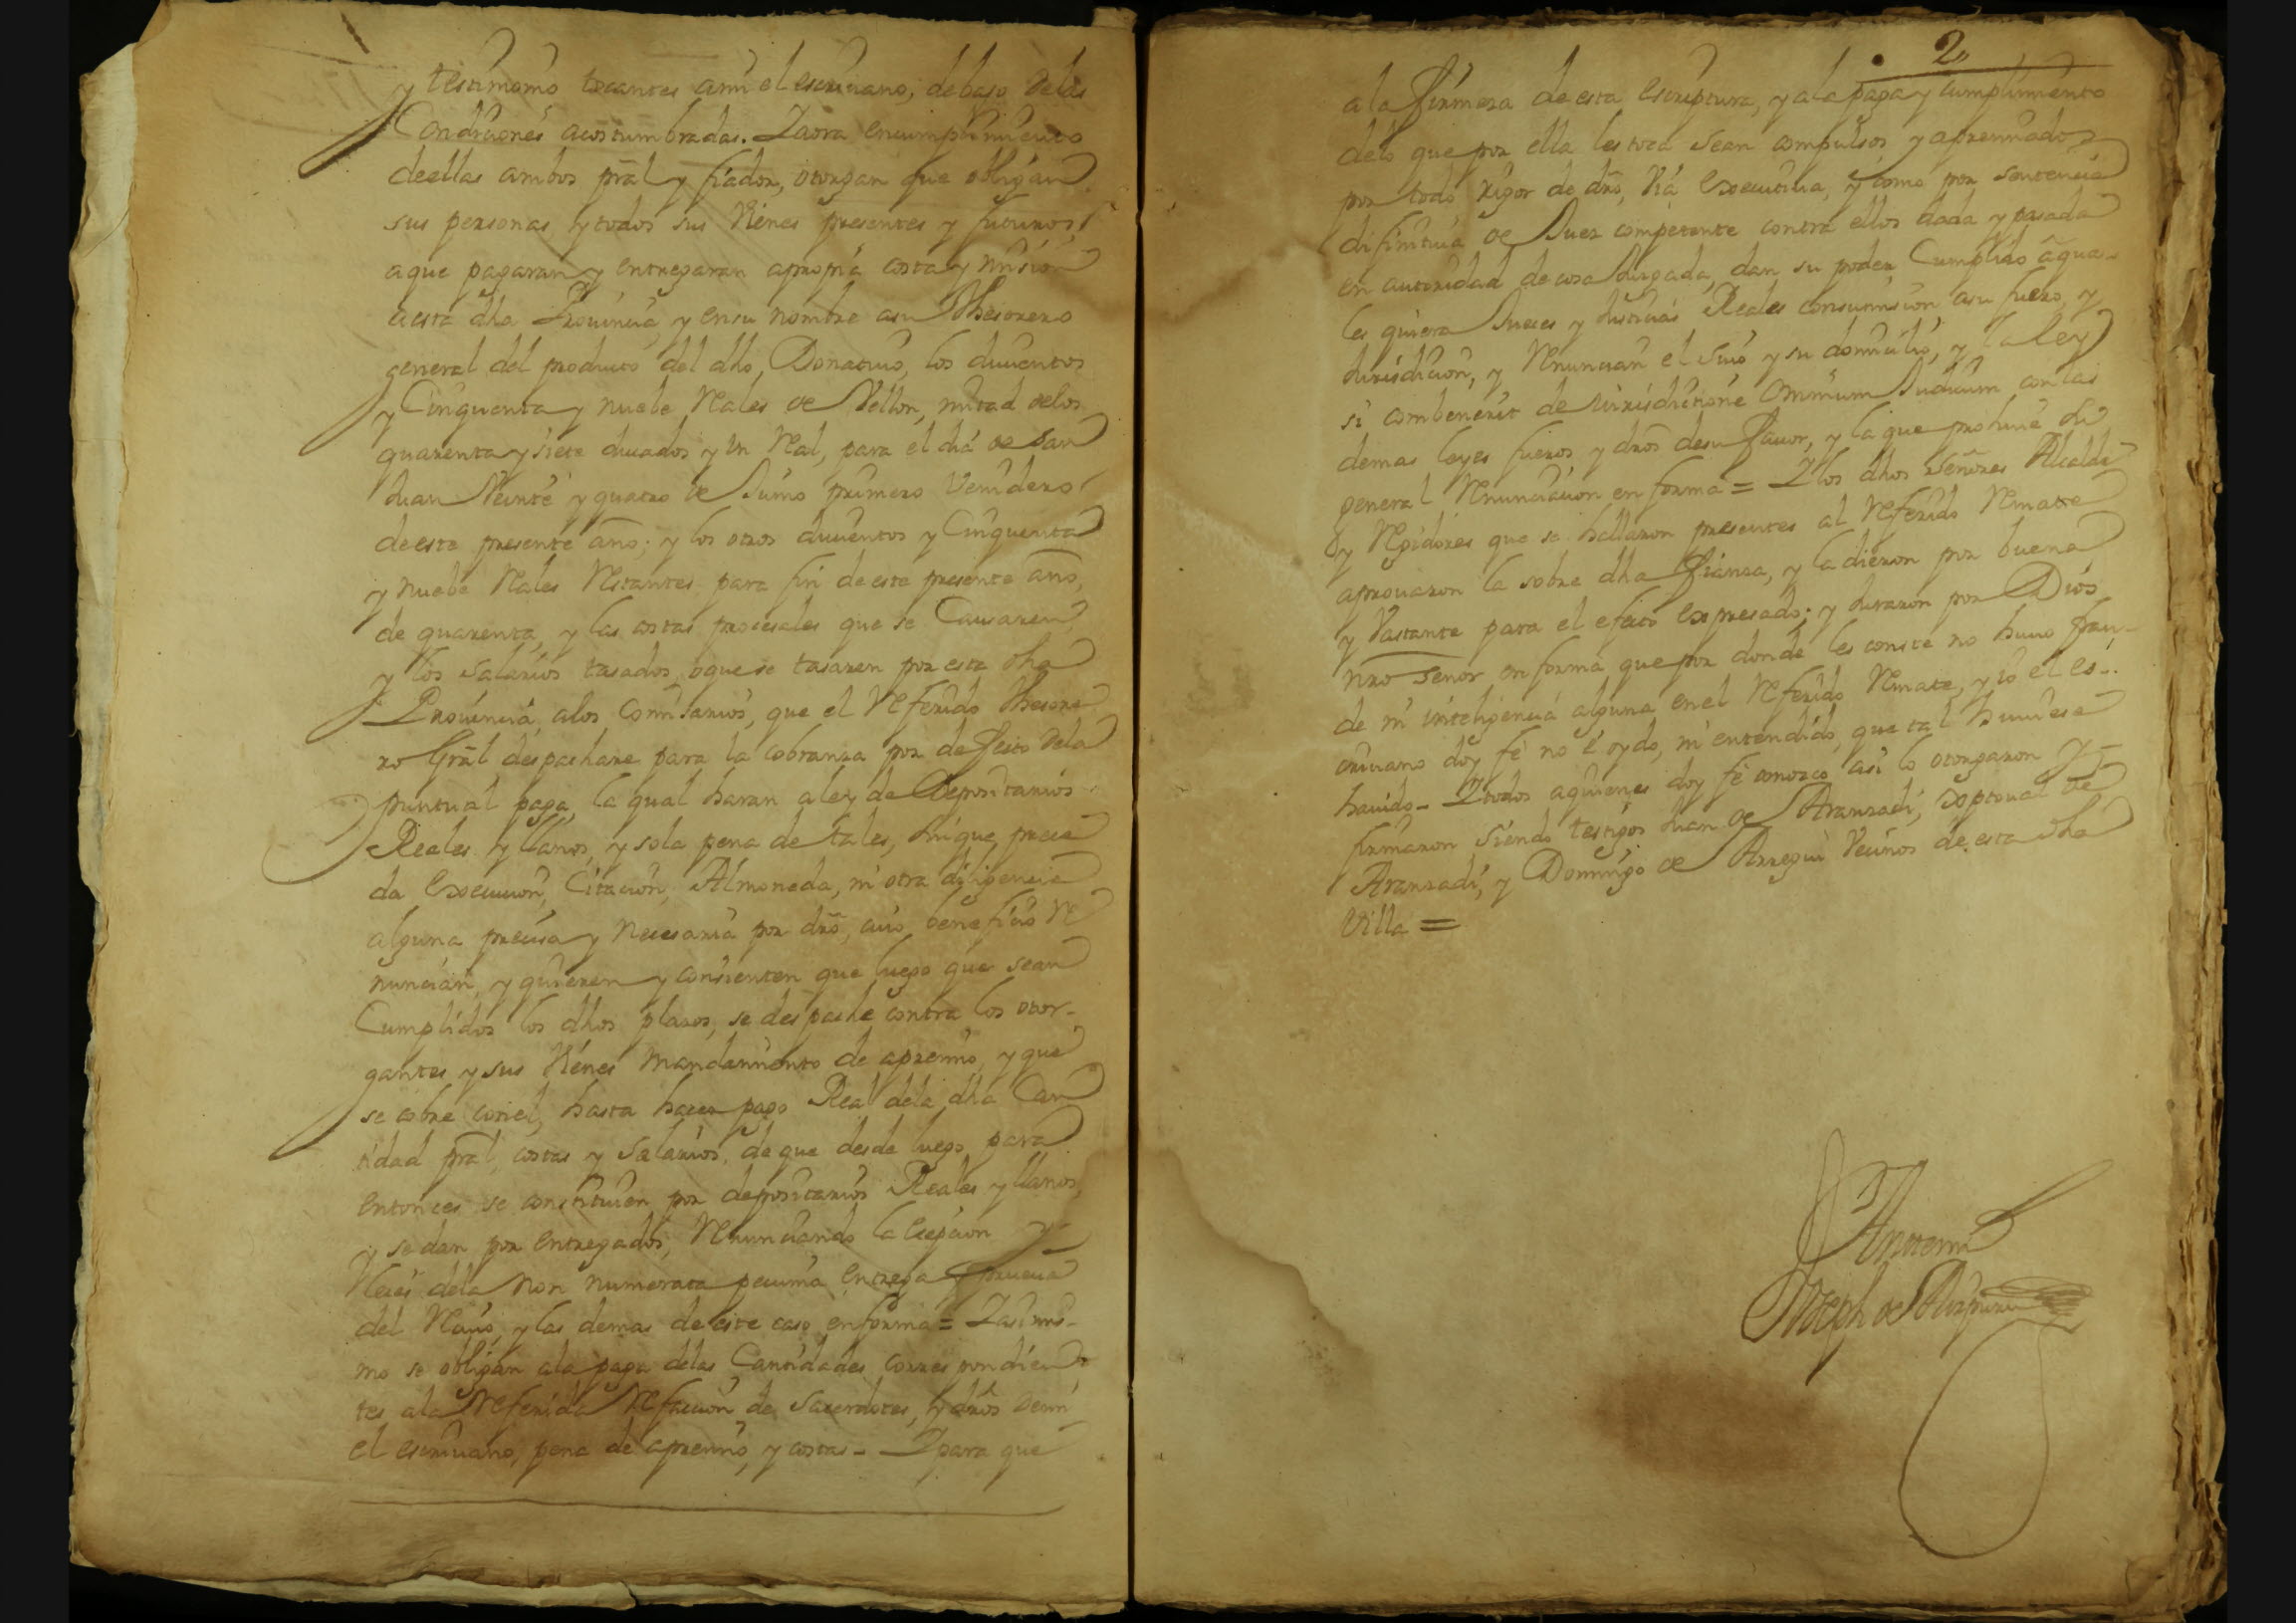 y testimonio tocantes a mi el escriuano, debajo delas
Condiciones acostumbradas. Y aora en cumplimiento
de ellas ambos pral y fiador, otorgan que obligan
sus personas y todos sus Vienes presentes y futuros,
a que pagaran y entregaran a propia costa y mision
a esta dha Prouincia, y en su nombre a su Thesorero
general del producto del dho Donatiuo, los ducientos
y Cinquenta y nuebe Rales de Vellon, mitad de los
quarenta y siete ducados y un Real, para el dia de San
Juan Veinte y quatro de Junio primero Venidero
de este presente año; y los otros ducientos y Cinquenta
y nuebe Rales Restantes para fin de este presente año,
de quarenta, y las costas procesales que se Causaren,
y los Salarios tasados, o que se tasaren por esta dha
Prouincia alos Comisarios, que el Referido Thesore
ro Gral despachare para la cobranza por defecto dela
puntual paga, la qual haran a ley de Depositarios
Reales y llanos, y so la pena de tales, sin que prece
da Execucion, Citacion, Almoneda, ni otra diligencia
alguna precisa y necesaria por dro, cuio beneficio Re
nuncian, y quieren y consienten que luego que sean
Cumplidos los dhos plazos, se despache contra los otor-
gantes y sus Vienes mandamiento de apremio, y que
se cobre con el, hasta hacer pago Real dela dha Can
tidad pral, costas y Salarios, de que desde luego para
entonces se constituien por depositarios Reales y llanos,
y se dan por entregados, Renunciando la Excepcion y
Leies dela non numerata pecunia, entrega y prueua
del Reciuo, y las demas de este caso en forma = Y asimis-
mo se obligan ala paga delas Cantidades correspondien
tes ala Referida Refaccion de Sacerdotes, y dros de mi
el escriuano, pena de apremio, y costas - Y para que
2
ala firmeza de esta Escriptura, y ala paga y cumplimiento
delo que por ella les toca sean compulsos y apremiados
por todo rigor de dro, Via Executiua, y como por Sentencia
difinitiua de Juez competente contra ellos dada y pasada
en autoridad de cosa Juzgada, dan su poder Cumplido a quas-
les quiera Jueces y Justicias Reales con sumision a su fuero, y
Jurisdicion, y Renuncian el Suio y su domicilio, y la ley
si combenerit de Jurisdictione Omnium Judicum con las
demas leyes fueros y dros de su fauor, y la que prohiue la
general Renunciacion en forma = Y los dhos Señores Alcalde
y Regidores que se hallaron presentes al Referido Remate
aprouaron la sobre dha fianza, y la dieron por buena
y Vastante para el efecto Expresado; y Juraron por Dios
nro Señor en forma que por donde les conste no huuo frau-
de ni inteligencia alguna en el Referido Remate, y io el es-
criuano doy fe no e oydo, ni entendido, que tal huuiese
hauido - Y todos aquienes doy fe conozco asi lo otorgaron y
firmaron Siendo testigos Juan de Aranzadi, de
Aranzadi, y Domingo de Arregui Vecinos de esta dha
Villa =
Ante mi
Joseph de